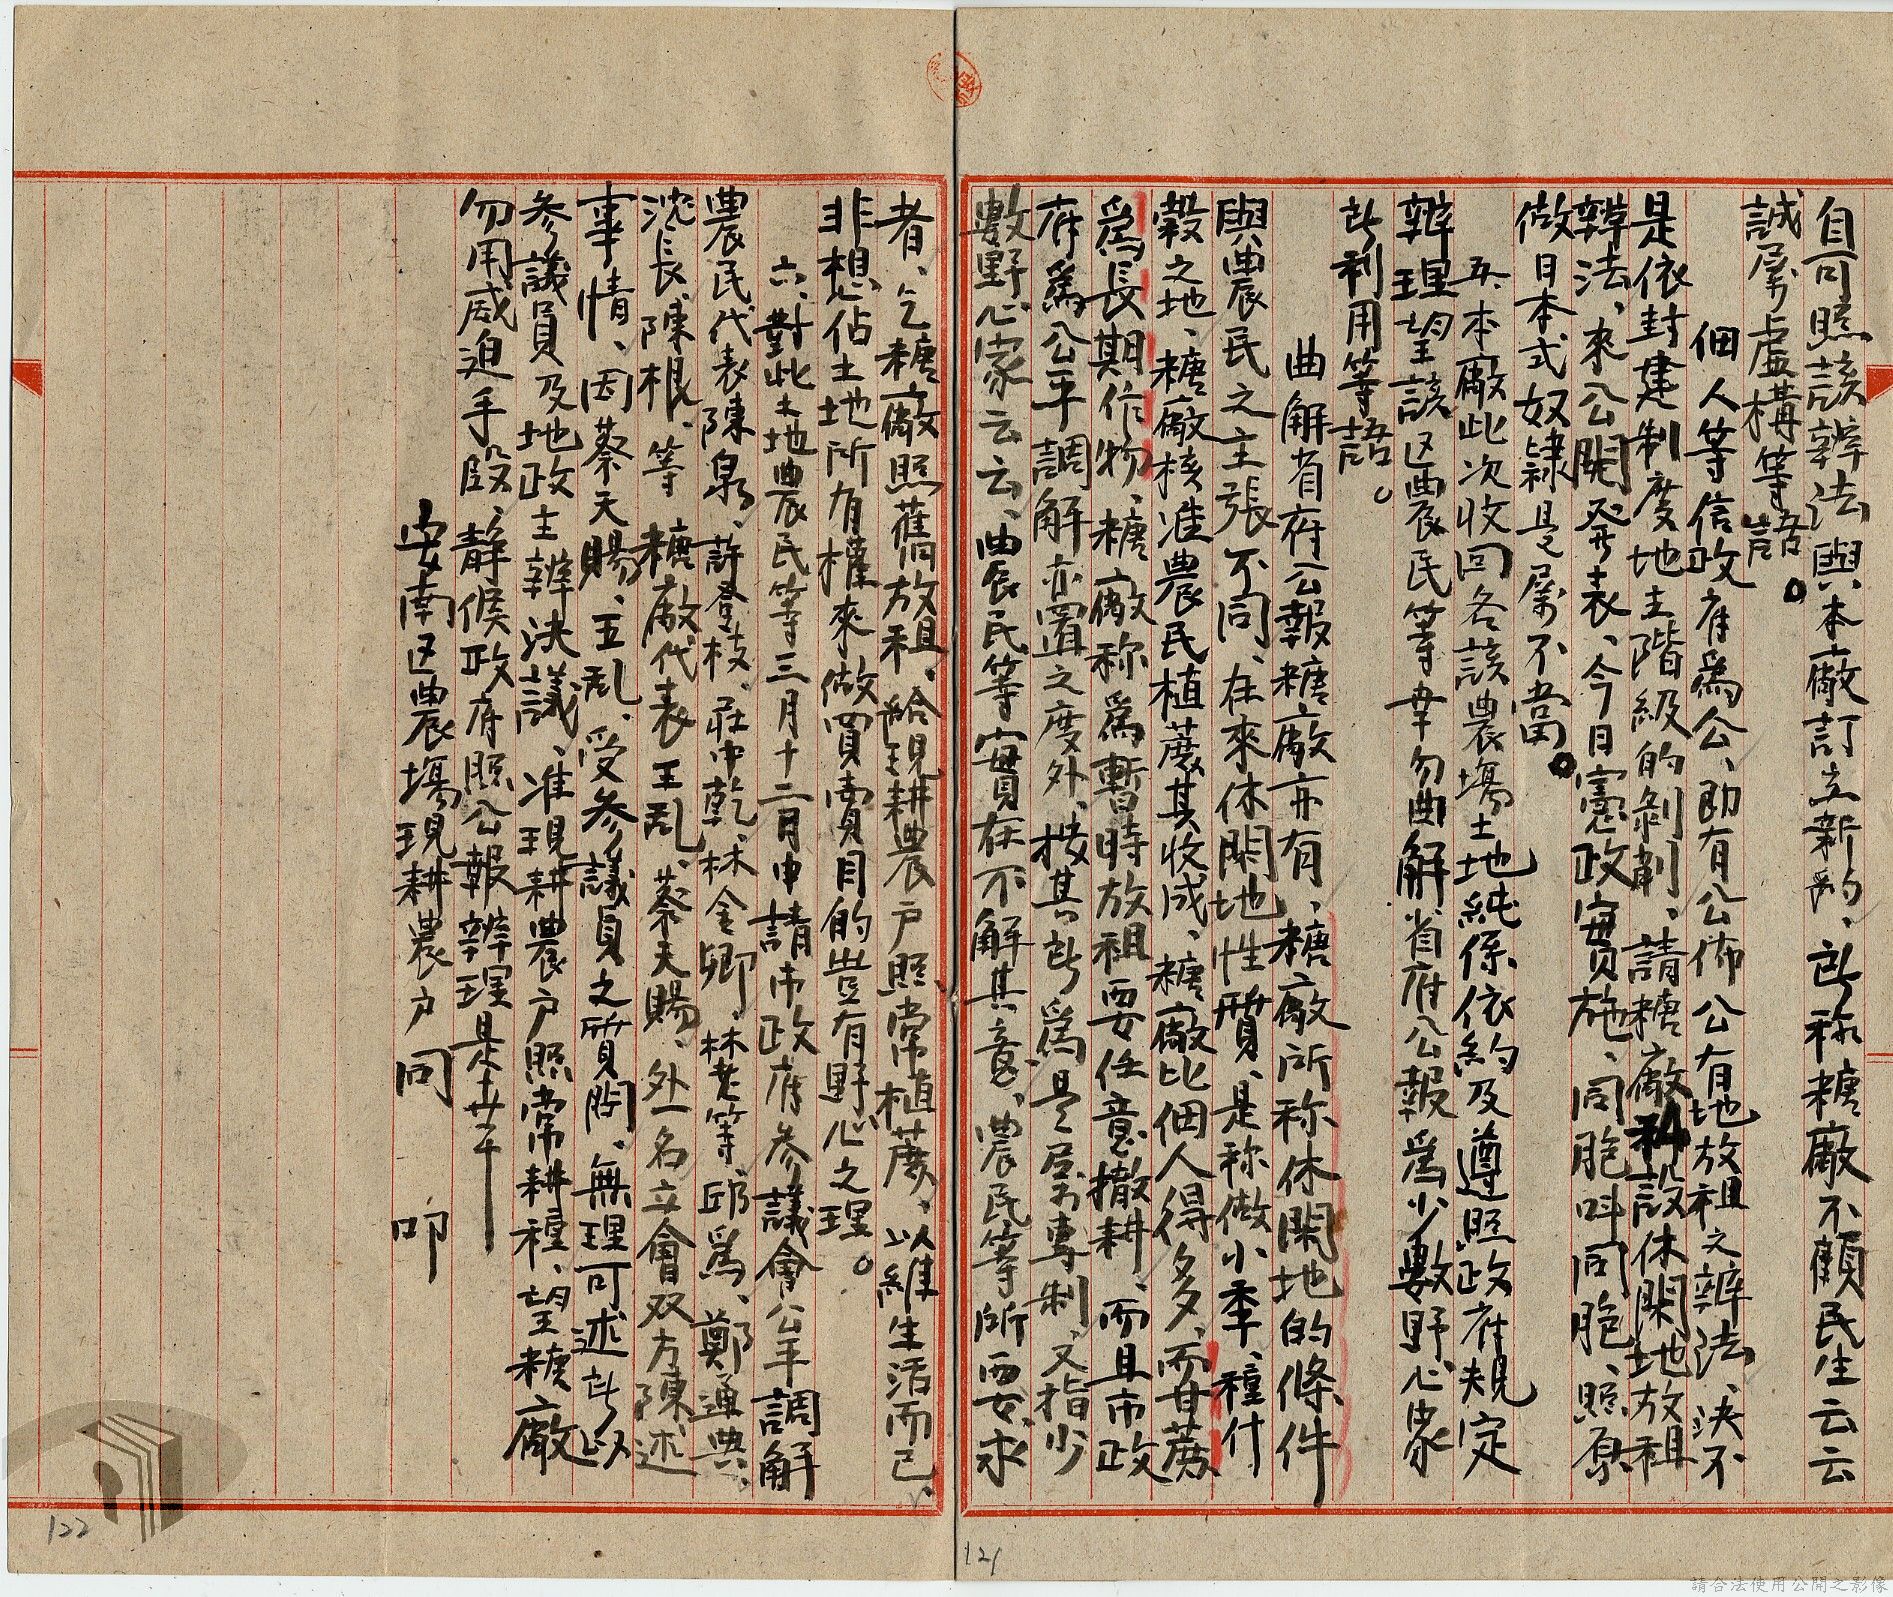 自可照該辦法與本廠訂立新約、訴称糖廠不顧民生云云
誠屬虛構等語。
佃人等信政府為公、即有公佈公有地放租之辦法、決不
是依封建制度地主階級的剝削、請糖廠科設休閑地放租
辦法、來公開發表、今日憲政實施、同胞叫同胞、照原
做日本式奴隸是屬不當。
五、本廠此次收回各該農場土地純係依約及遵照政府規定
辦理望該区農民等幸勿曲解省府公報為少數野心家
訴利用等語。
曲解省府公報糖廠亦有、糖廠所称休閑地的條件
與農民之主張不同、在來休閑地性質、是称做小季、種什
穀之地、糖廠核准農民植蔗其收成、糖廠比佃人得多、而甘蔗
為長期作物、糖廠称為暫時放租要任意撤耕、而且市政
府為公平調解亦置之度外、按其訴為是屬專制、又指少
數野心家云云、農民等實在不解其意、農民等所要求
者、乞糖廠照舊放租、給現耕農户照常植蔗、以維生活而已、
非想佔土地所有權來做買賣目的豈有野心之理。
六、對此土地農民等三月十二日申請市政府參議會公平調解
農民代表陳泉、許登枝、莊中乾、林金鄉、林老等、邱為、鄭通典、
沈長、陳根、等 糖廠代表王乱、蔡天賜、外一名立會双方陳述
事情、因蔡天賜、王乱、受參議員之質問、無理可述訴以
參議員及地政主辦決議、准現耕農户照常耕種、望糖廠
勿用威迫手段、靜候政府照公報辦理是幸
安南区農場現耕農户同 叩
122
121
請合法使用公開之影像